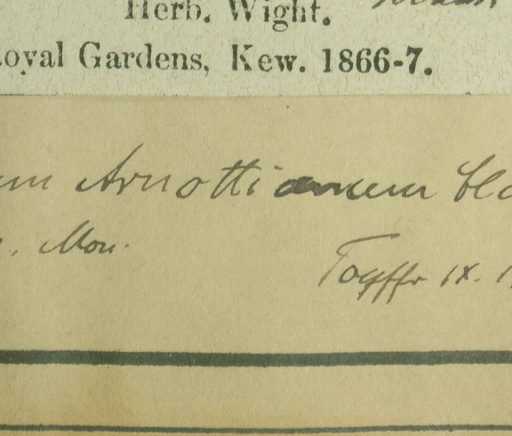 Herb. Wight.
Royal Gardens, Kew. 1866-7.
Arnottianum
Mon.
IX.